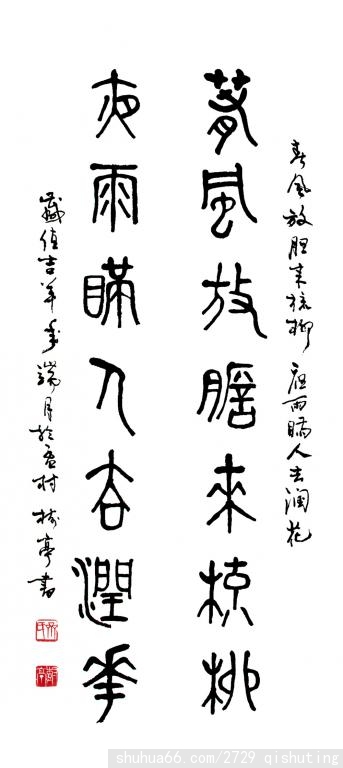 春风放胆来梳柳 夜雨瞒人去润花
春風放膽來梳柳
夜雨瞞人去潤華
歲值吉羊年端月於村树亭書
shuhua66.com/2729 qishuting